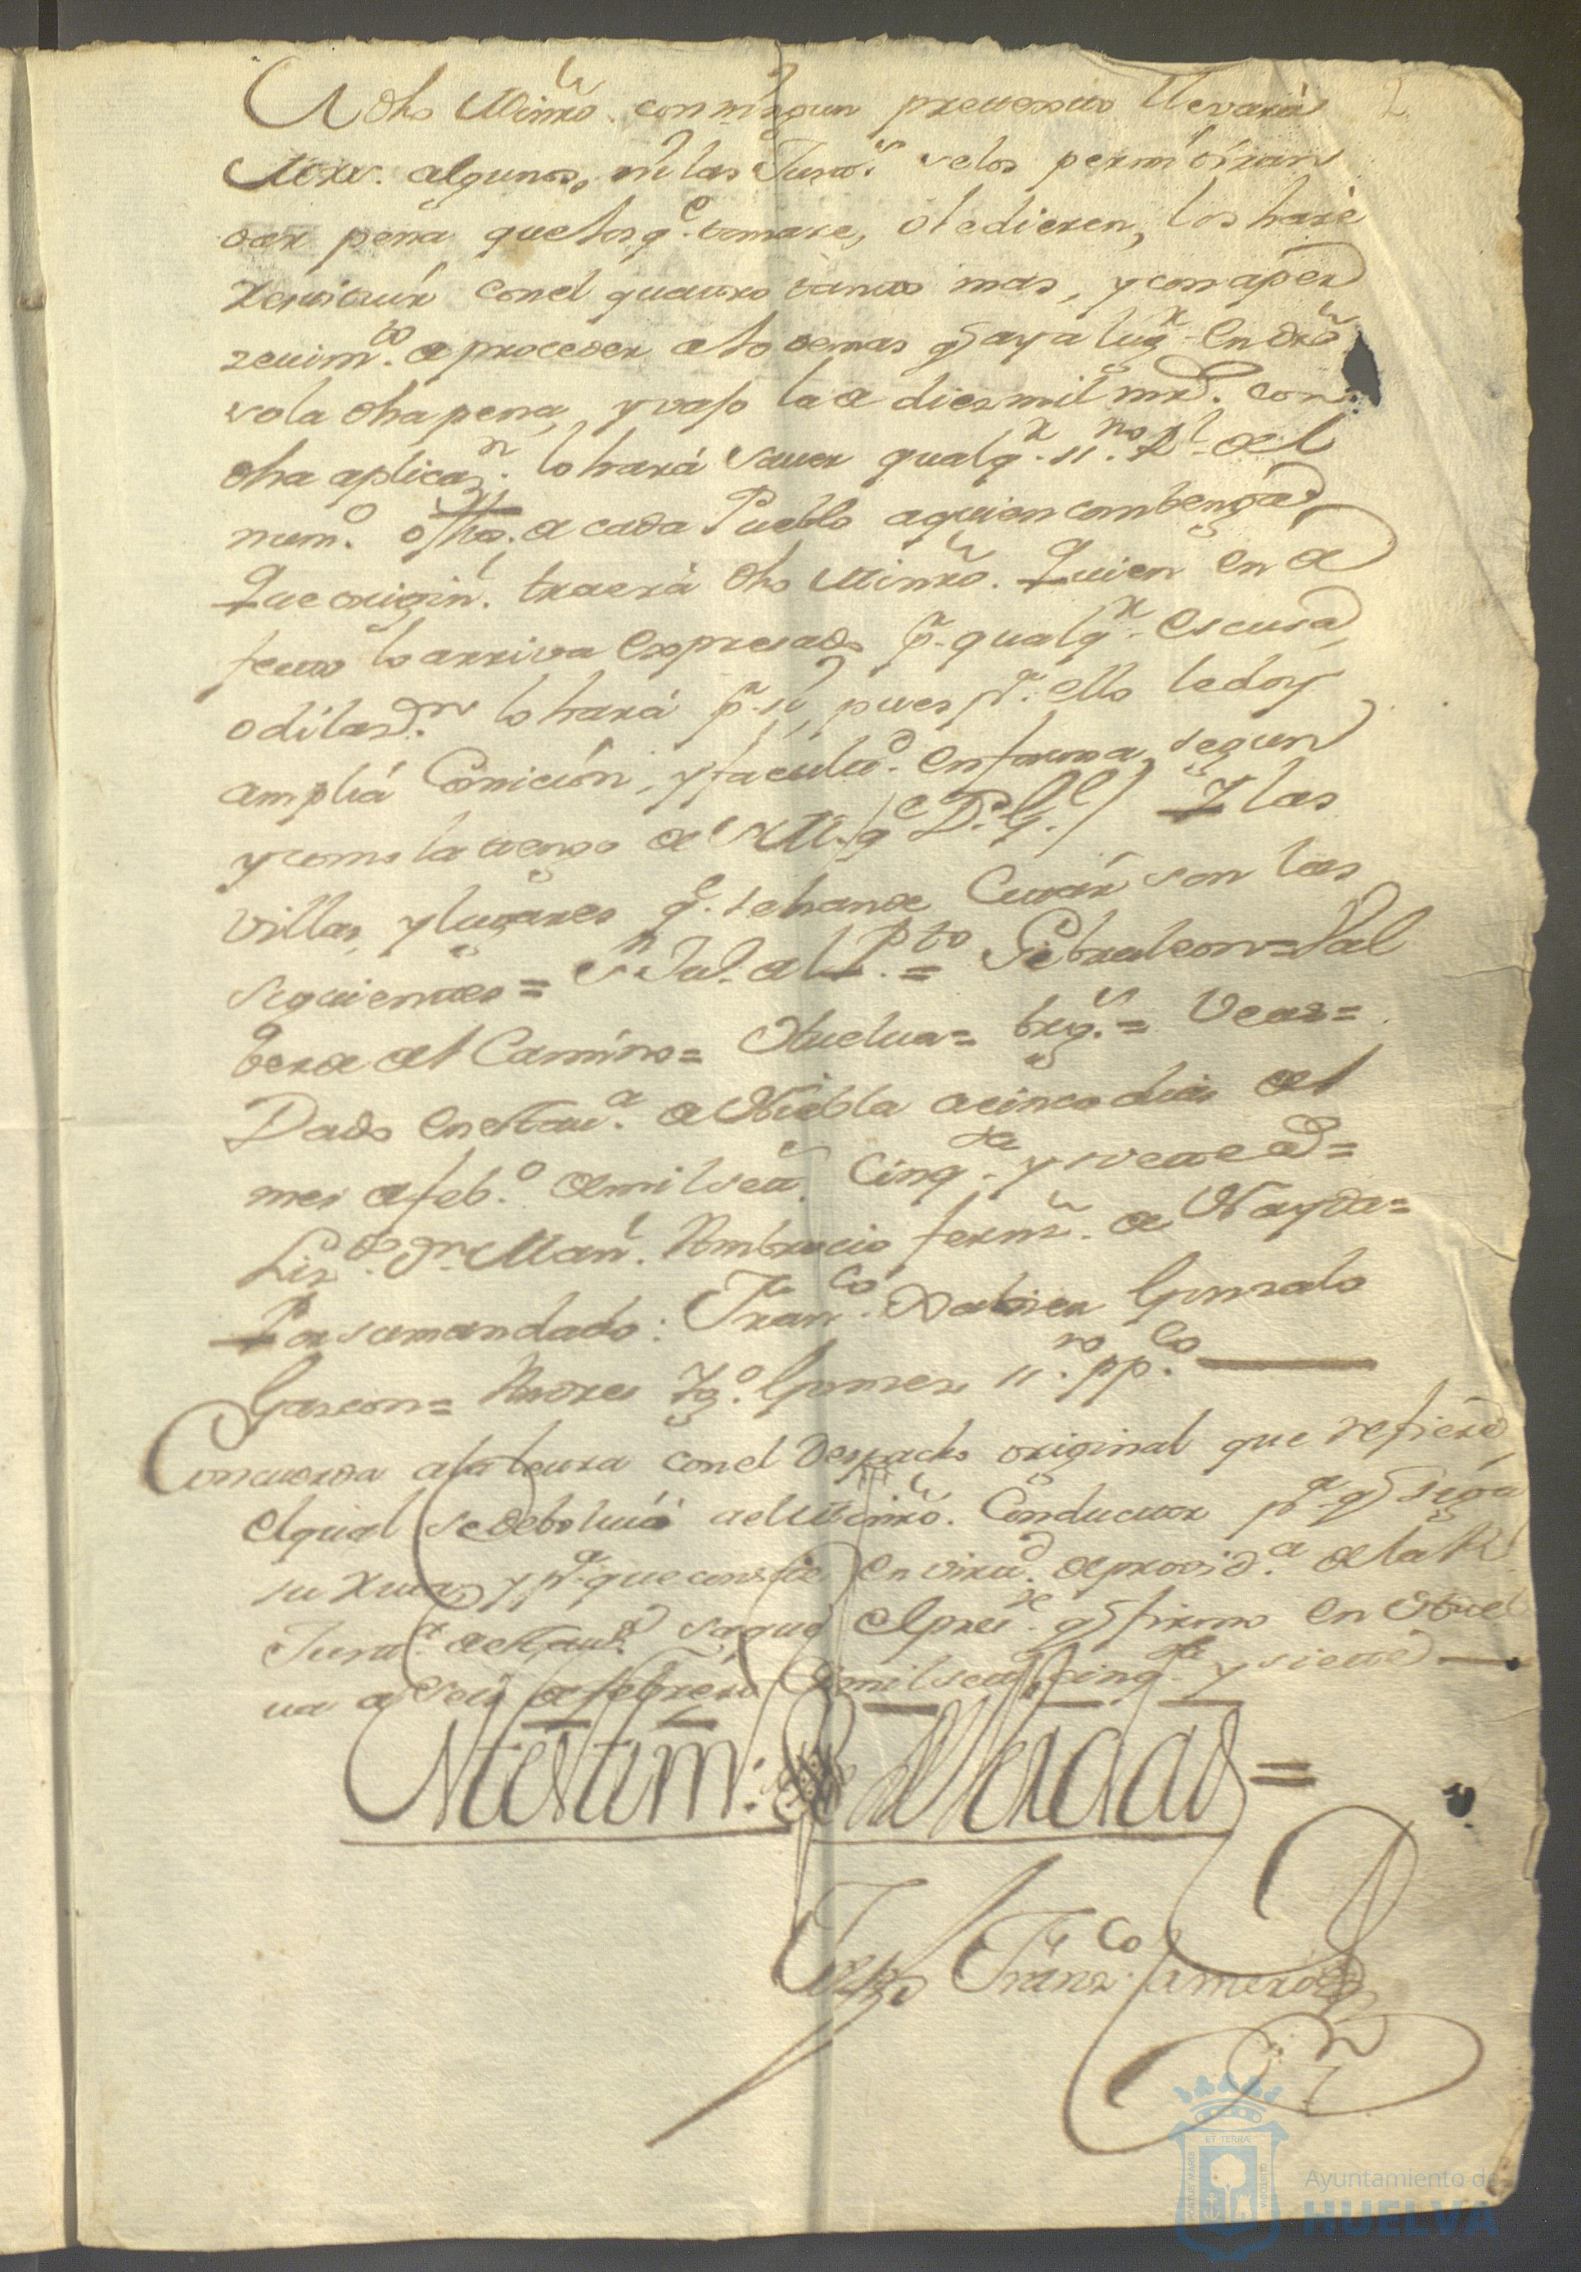 2
Y dho Minro. con ningun pretexto llevará
dros. algunos, ni las Justas. se los permitiran
por pena que los q.e tomare, o le dieren, los hare
restituir con el quatro tanto mas, y con aper
zevim.to a proceder a lo demas q aya lug.r en dro
so la dha pena, y vajo la de diez mil mrs. con
dha aplicaz.n lo hará saver qualq.r ss.no R.l del
num.o o fho. de cada Pueblo a quien combenga
Que origin.l traerá dho Minro. Quien en de
fecto lo arriva expresado p.r qualq.r escusa
o dilaz.on lo hará p.r si, pues p.a ello le doy
amplia Comicion, y faculta.d en forma segun
y como la tengo de S M (q.e D.s G.e) Y las
Villas, y lugares q.e se han de Corrér son las
siguientes = S.n Ju.n del P.to = Gibraleon = Val
berde del Camino = Huelua = Trig.s = Veas =
Dado en esta v.a de Niebla a cinco dias del
mes de feb.o de mil set.s Cinq.ta y siete =
Liz.do D.n Man.l Ambrocio ferm.n de Nayda =
Por su mandado: Fran.co Xabier Gonzalo
Gascon = Andres Ig.o Gomez ss.no pp.co
Concuerda a la letra con el Despacho original que refiere
el qual se debolvió a el Minro. Conductor p.a q siga
su Ruta, y p.a que conste en virtu.d de provid.a de la R.l
Justa. de esta v.a saque el pres.te q firmo en Huel
ua a seis de febrero de mil set.s cinq.ta y siete
En testim.o de Verdad =
Jph Franz.co Camero
ET TERRAE
PORTUS MARIS
CUSTODIA
Ayuntamiento de
HUELVA